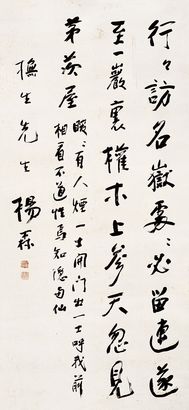 行々訪名嶽處々必留連遂
至一巖裏權木上參天忽見
茅茨屋
曖々有人煙一士開門出一士呼我前
相看不道姓焉知隱與仙
樵生先生
楊森